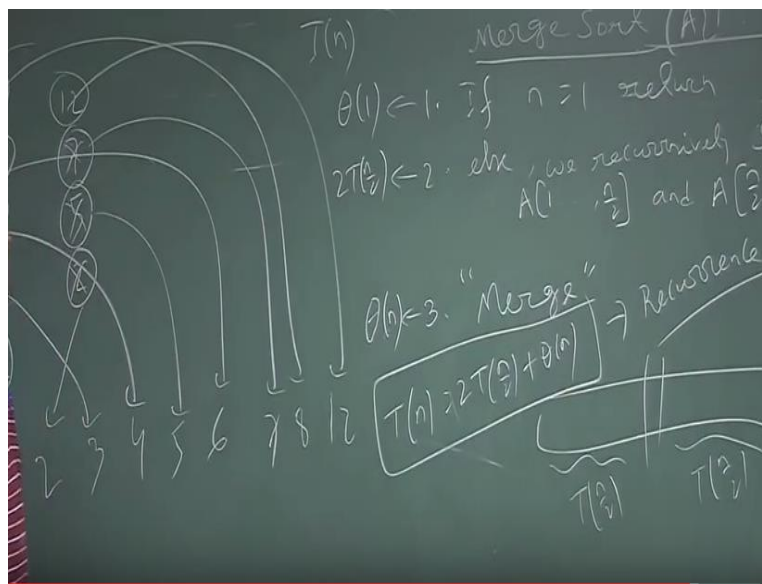 T(n)
Merge Sort (A[1
θ(1) ← 1. If n = 1 return
2T(n/2) ← 2. else, we recursively
A[1 .. , n/2] and A[n/2
θ(n) ← 3. "Merge"
T(n) = 2T(n/2) + θ(n) → Recurrence
T(n/2) T(n/2)
12
7
5
2
2 3 4 5 6 7 8 12